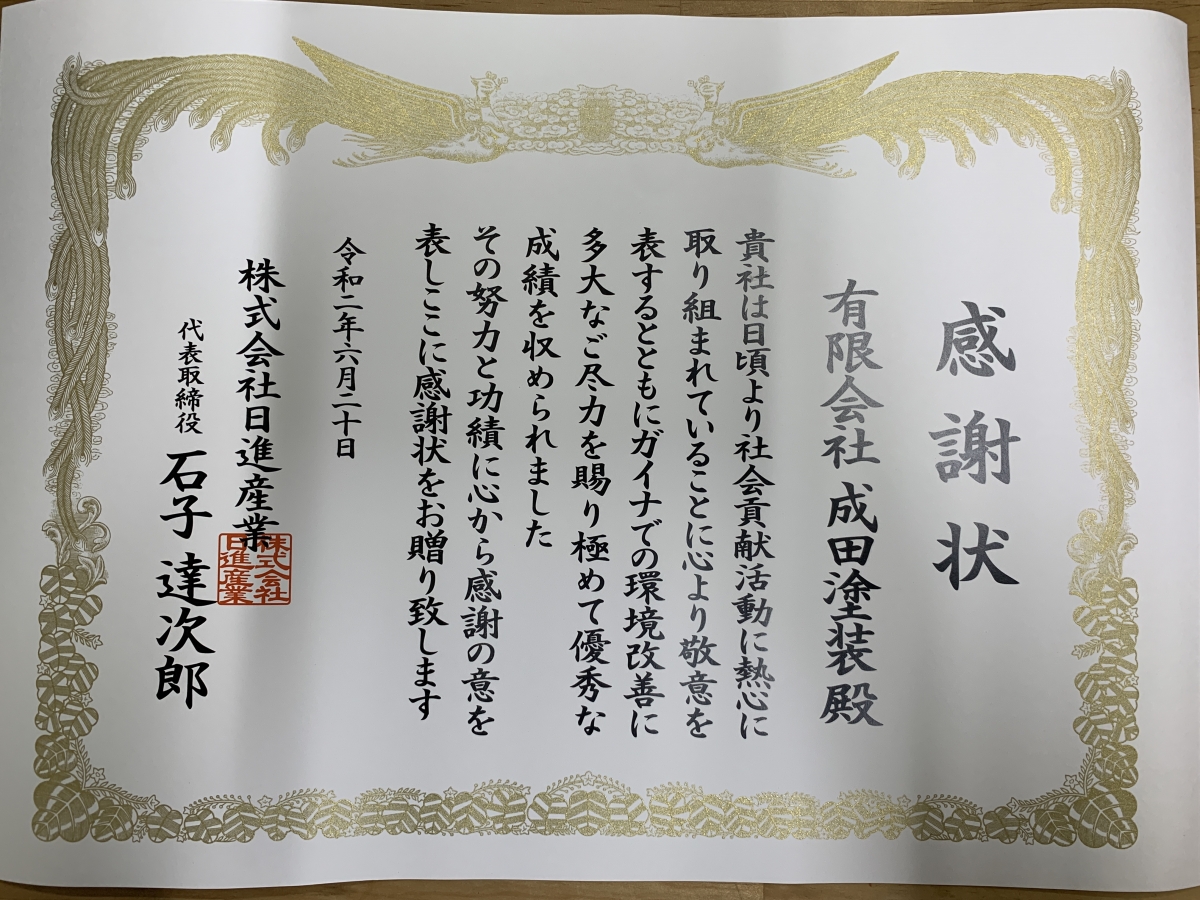 感謝状
有限会社 成田塗装殿
貴社は日頃より社会貢献活動に熱心に
取り組まれていることに心より敬意を
表するとともにガイナでの環境改善に
多大なご尽力を賜り極めて優秀な
成績を収められました
その努力と功績に心から感謝の意を
表しここに感謝状をお贈り致します
令和二年六月二十日
株式会社日進産業
代表取締役 石子 達次郎
株式会社
日進産業